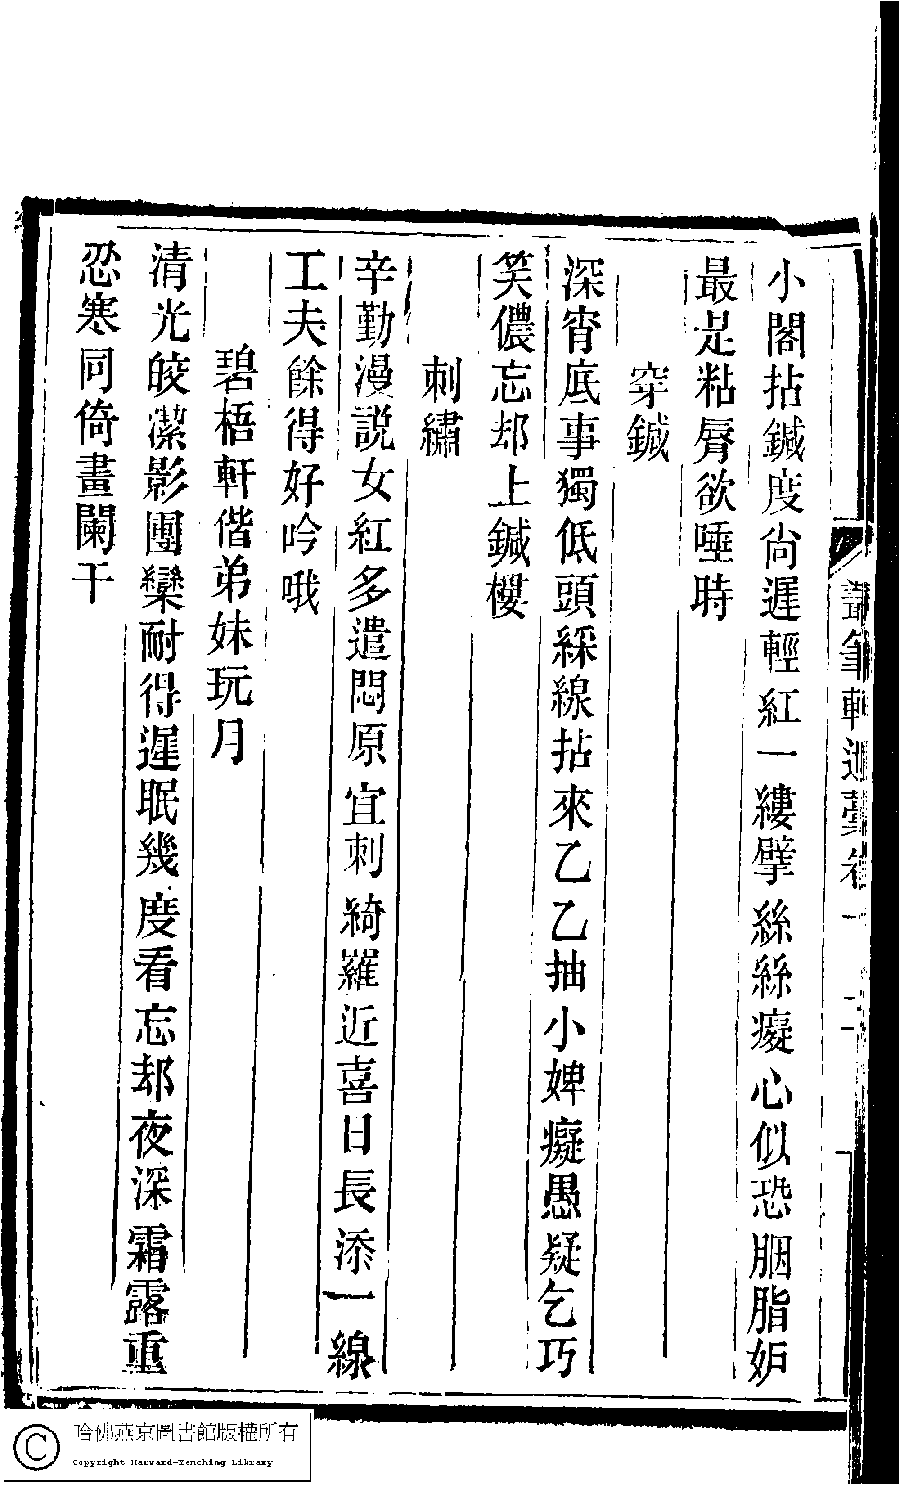 小閣拈鍼度尙遲輕紅一縷擘絲絲癡心似恐胭脂妒
最是粘脣欲唾時
穿鍼
深宵底事獨低頭綵線拈來乙乙抽小婢癡愚疑乞巧
笑儂忘却上鍼樓
刺繡
辛勤漫説女紅多遣悶原宜刺綺羅近喜日長添一線
工夫餘得好吟哦
碧梧軒偕弟妹玩月
清光皎潔影團欒耐得遲眠幾度看忘却夜深霜露重
忍寒同倚畫闌干
筆軒遺稾卷一
二
哈佛燕京圖書館版權所有
Copyright Harvard-Yenching Library